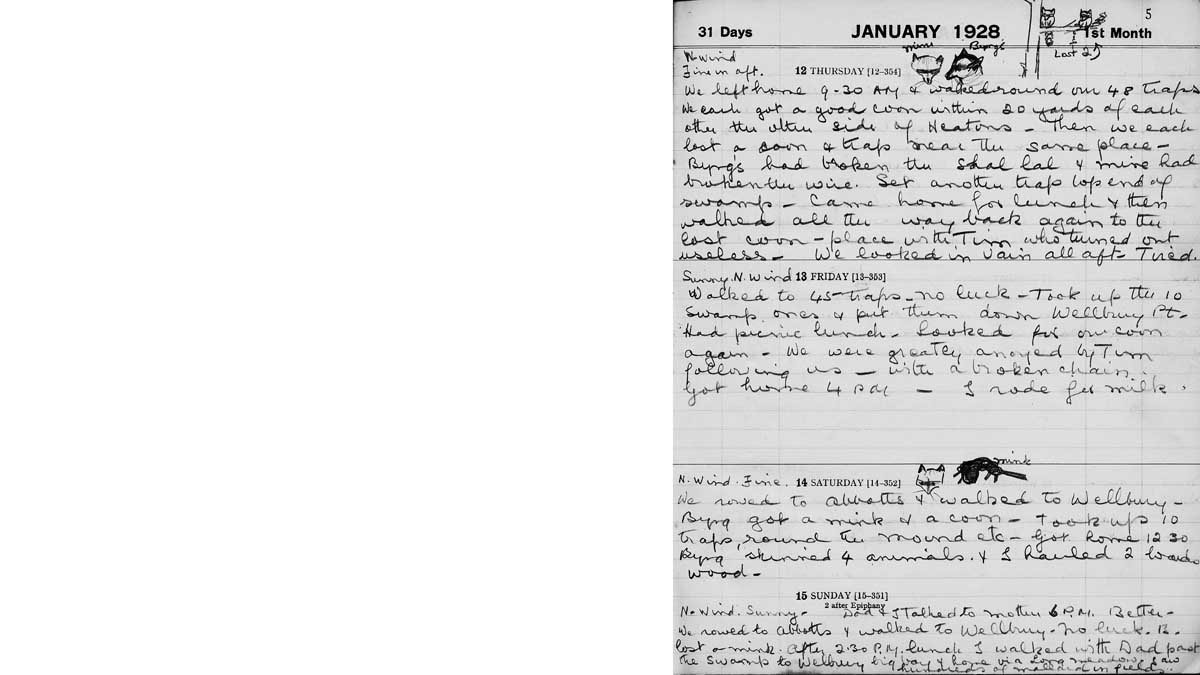 5
31 Days JANUARY 1928 1st Month
Lost 2
mine Byrg's
N. Wind
Fine in aft. 12 THURSDAY [12-354]
We left home 9-30 AM & walked round our 48 traps
We each got a good coon within 20 yards of each
other the other side of Heatons - Then we each
lost a coon & trap near the same place -
Byrg's had broken the & mine had
broken the wire. Set another trap top end of
swamp - Came home for lunch & then
walked all the way back again to the
lost coon - place with Tim who turned out
useless - We looked in vain all aft - Tired.
Sunny. N. Wind 13 FRIDAY [13-353]
Walked to 45 traps - no luck - Took up the 10
swamp ones & put them down Wellbury Pt -
Had picnic lunch - Looked for our coon
again - We were greatly anoyed by Tim
following us - with a broken chain.
Got home 4 PM - I rode for milk.
mink
N. Wind. Fine. 14 SATURDAY [14-352]
We rowed to Abbotts & walked to Wellbury -
Byrg got a mink & a coon - Took up 10
traps, round the mound etc - Got home 12 30
Byrg skinned 4 animals. & I hauled 2 loads
wood -
15 SUNDAY [15-351]
2 after Epiphany
N. Wind. Sunny - Dad & I Talked to mother 6 P.M. Better -
We rowed to Abbotts & walked to Wellbury - No luck. B.
lost a mink. After 2.30 P.M. lunch I walked with Dad past
the Swamp to Wellbury big way & home via Long meadow. Saw
hundreds of mallard in fields.